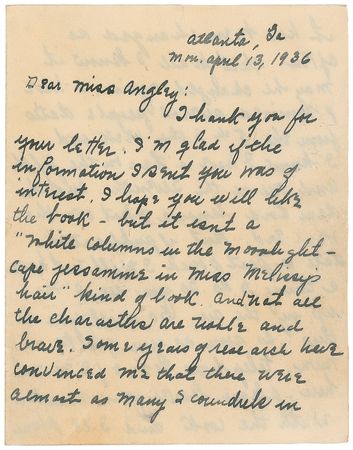 Atlanta, Ga
Mon. April 13, 1936
Dear Miss Angley:
I thank you for
your letter. I'm glad if the
information I sent you was of
interest. I hope you will like
the book - but it isn't a
"white columns in the moonlight -
cape jessamine in Miss Melissy's
hair" kind of book. And not all
the characters are noble and
brave. Some years of research have
convinced me that there were
almost as many scoundrels in